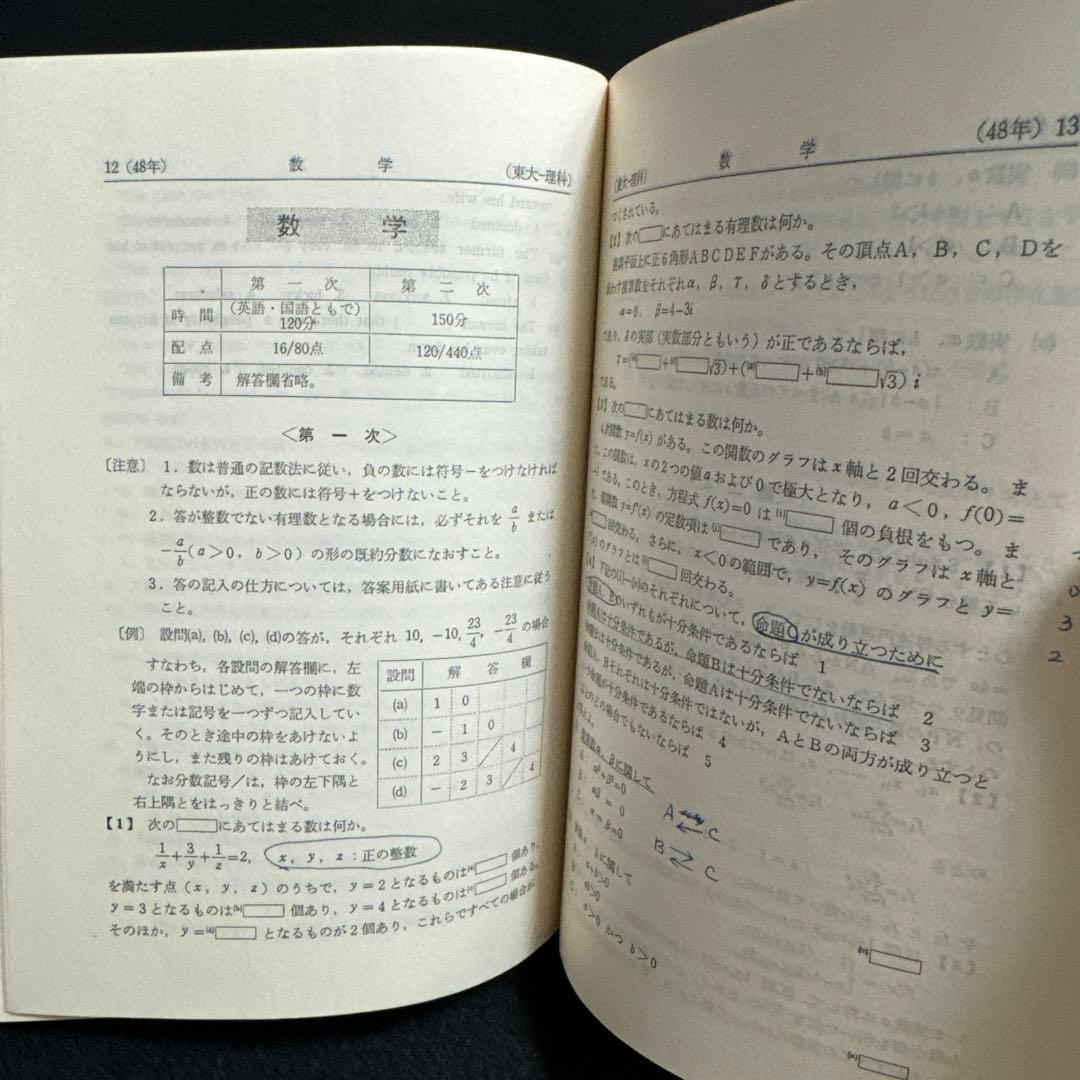 12 (48年) 数 学 (東大-理科)
数 学
第 一 次 第 二 次
時 間 (英語・国語ともで) 120分 150分
配 点 16/80点 120/440点
備 考 解答欄省略。
<第 一 次>
〔注意〕 1．数は普通の記数法に従い，負の数には符号−をつけなければ
ならないが，正の数には符号＋をつけないこと。
2．答が整数でない有理数となる場合には，必ずそれを a/b または
−a/b(a>0, b>0) の形の既約分数になおすこと。
3．答の記入の仕方については，答案用紙に書いてある注意に従う
こと。
〔例〕 設問(a), (b), (c), (d)の答が，それぞれ 10, −10, 23/4, −23/4 の場合
すなわち，各設問の解答欄に，左
端の枠からはじめて，一つの枠に数
字または記号を一つずつ記入してい
く。そのとき途中の枠をあけないよ
うにし，また残りの枠はあけておく。
なお分数記号/は，枠の左下隅と
右上隅とをはっきりと結べ。
設問 解 答 欄
(a) 1 0
(b) − 1 0
(c) 2 3 / 4
(d) − 2 3 / 4
【1】 次の□にあてはまる数は何か。
1/x+3/y+1/z=2, x, y, z：正の整数
を満たす点 (x, y, z) のうちで，y=2 となるものは(a)□ 個あり，
y=3 となるものは(b)□ 個あり，y=4 となるものは(c)□ 個ある。
そのほか，y=(d)□ となるものが2個あり，これらですべての場合が
(東大-理科) 数 学 (48年) 13
つくされている。
【2】次の□にあてはまる有理数は何か。
複素平面上に正6角形ABCDEFがある。その頂点A，B，C，Dを
表わす複素数をそれぞれα, β, γ, δとするとき，
α=0, β=4−3i
であり，δの実部（実数部分ともいう）が正であるならば，
γ=(e)□+(f)□√3)+((g)□+(h)□√3) i
である。
【3】次の□にあてはまる数は何か。
4次関数 y=f(x) がある。この関数のグラフは x 軸と 2 回交わる。ま
た，この関数は，xの2つの値aおよび0で極大となり，a<0, f(0)=
である。このとき，方程式 f(x)=0 は(i)□ 個の負根をもつ。ま
た，導関数 y=f'(x) の定数項は(j)□ であり，そのグラフは x 軸と
□回交わる。さらに，x<0の範囲で，y=f(x) のグラフと y=
f'(x) のグラフとは□回交わる。
【4】下記の のそれぞれについて，命題Cが成り立つために
命題A，Bのいずれもが十分条件であるならば 1
命題Aは十分条件であるが，命題Bは十分条件でないならば 2
命題Bは十分条件であるが，命題Aは十分条件でないならば 3
命題A，Bそれぞれは十分条件ではないが，AとBの両方が成り立つと
いう命題が十分条件であるならば 4
以上のどの場合でもないならば 5
α, βに関して
A：α²+β²=0
B：αβ = 0
C：α=β=0
A ← C
B ⇄ C
実数a, bに関して
A：a+b>0
B：ab>0
C：a>0 かつ b>0
(m)□
(n)□
3
2